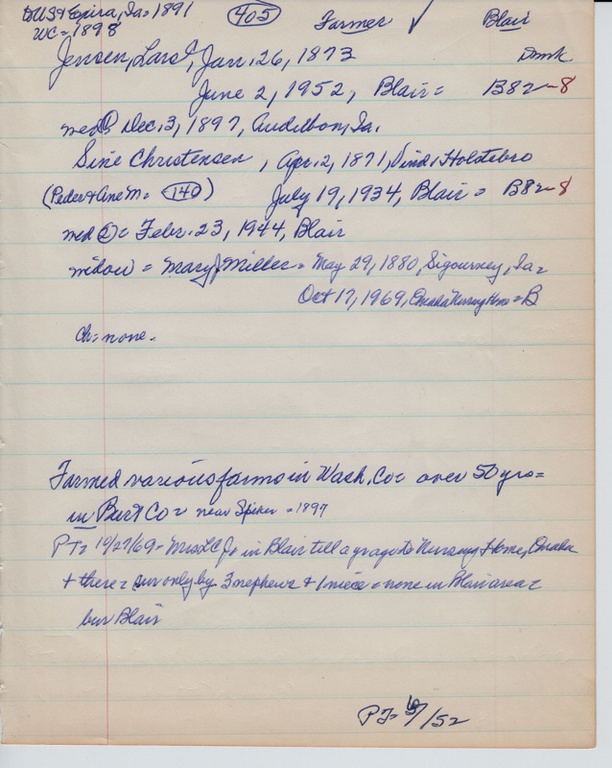 US & Exira, Ia = 1891 405 Farmer ✓ Blair
WC = 1898
Jensen, Lars C, Jan. 26, 1873 Dmk
June 2, 1952, Blair = B82-8
med ① Dec. 3, 1897, Audubon, Ia.
Sine Christensen, Apr. 2, 1871, Vind, Holstebro
(Peder & Ane M = 140) July 19, 1934, Blair = B82-8
med ② = Febr. 23, 1944, Blair
widow = Mary J. Miller = May 29, 1880, Sigourney, Ia =
Oct 17, 1969, Omaha Nursing Home = B
Ch = none.
Farmed various farms in Wash. Co = over 50 yrs =
in Burt Co = near Spiker = 1897
PT = 10/27/69 - Mrs LC J in Blair till ago to Nursing Home, Omaha
& there = sur only by 3 nephews & 1 niece = none in Blair area =
bur Blair
PT = /52